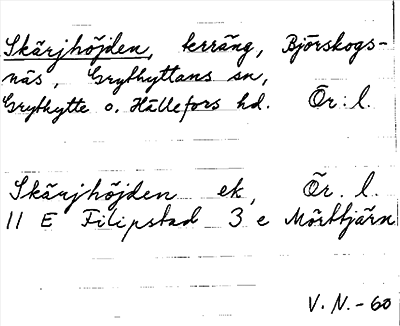 Skärjhöjden, terräng, Björskogs-
näs, Grythyttans sn,
Grythytte o. Hällefors hd. Ör. l.
Skärjhöjden ek, Ör. l.
11 E Filipstad 3 e Mörttjärn
V. N. - 60